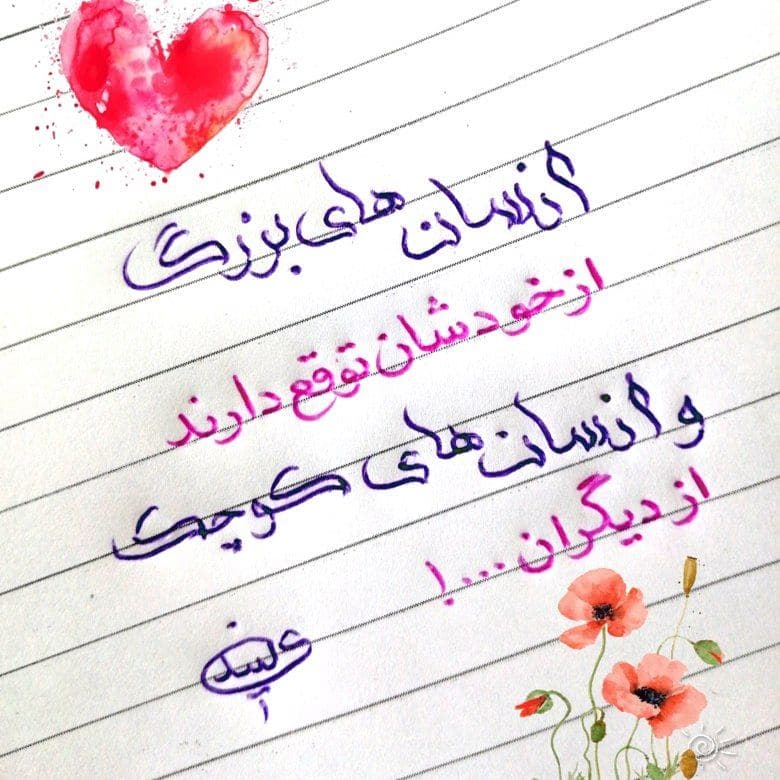 انسان های بزرگ
از خودشان توقع دارند
و انسان های کوچک
از دیگران ...!